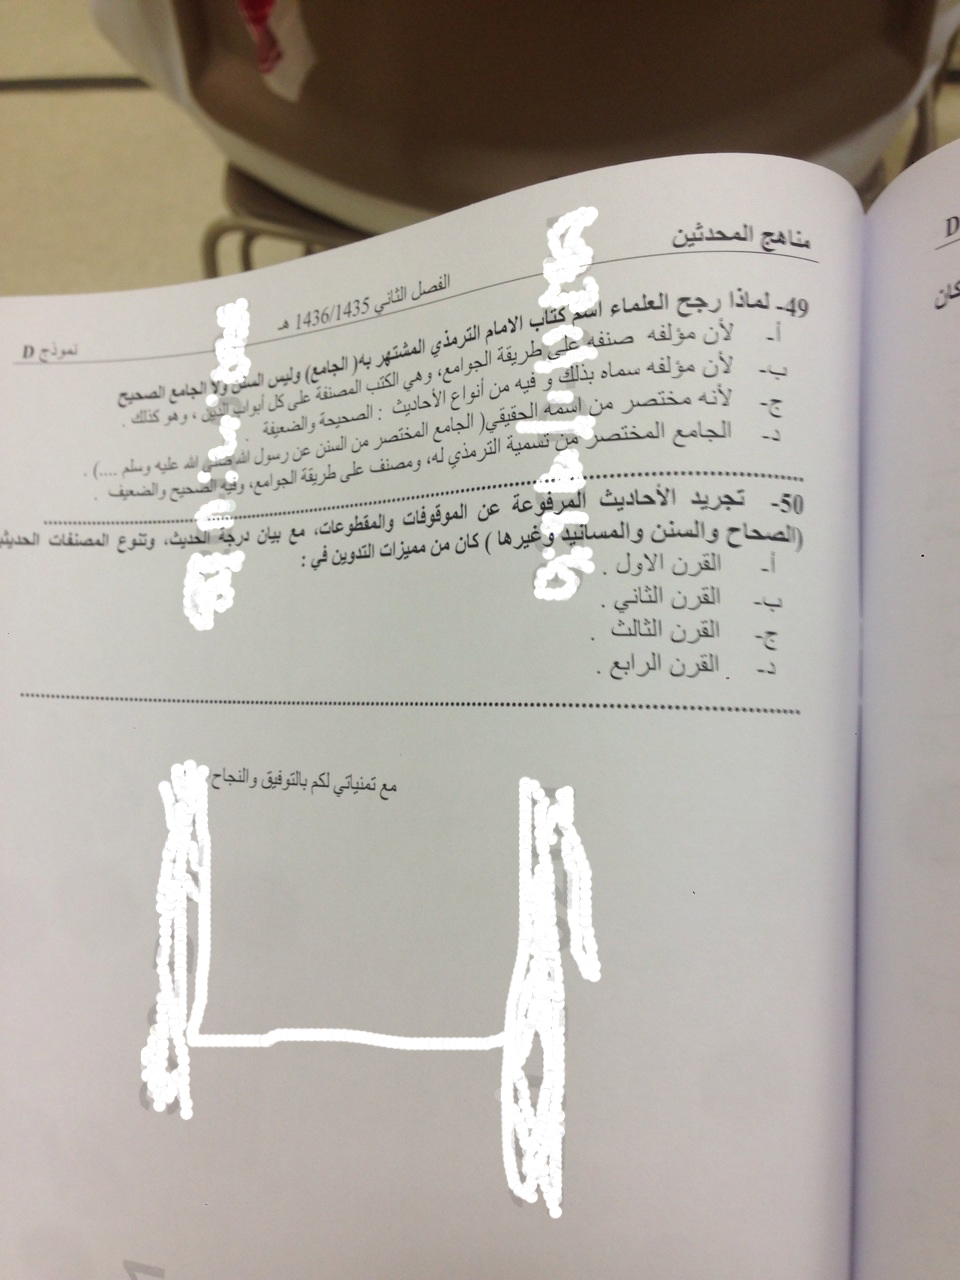 مناهج المحدثين
الفصل الثاني 1436/1435 هـ
نموذج D
49- لماذا رجح العلماء اسم كتاب الامام الترمذي المشتهر به( الجامع) وليس السنن ولا الجامع الصحيح
أ- لأن مؤلفه صنفه على طريقة الجوامع، وهي الكتب المصنفة على كل أبواب الدين ، وهو كذلك .
ب- لأن مؤلفه سماه بذلك و فيه من أنواع الأحاديث : الصحيحة والضعيفة .
ج- لأنه مختصر من اسمه الحقيقي( الجامع المختصر من السنن عن رسول الله صلى الله عليه وسلم ....) .
د- الجامع المختصر من تسمية الترمذي له، ومصنف على طريقة الجوامع، وفيه الصحيح والضعيف .
50- تجريد الأحاديث المرفوعة عن الموقوفات والمقطوعات، مع بيان درجة الحديث، وتنوع المصنفات
(الصحاح والسنن والمسانيد وغيرها ) كان من مميزات التدوين في :
أ- القرن الاول .
ب- القرن الثاني .
ج- القرن الثالث .
د- القرن الرابع .
مع تمنياتي لكم بالتوفيق والنجاح
D
كان